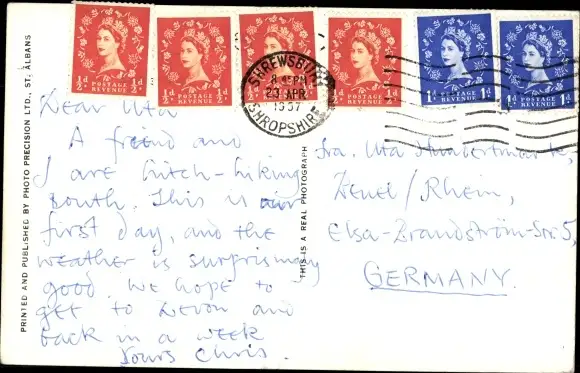 ½d POSTAGE REVENUE ½d
½d POSTAGE REVENUE ½d
½d POSTAGE REVENUE ½d
½d POSTAGE REVENUE ½d
1d POSTAGE REVENUE 1d
1d POSTAGE REVENUE 1d
SHREWSBURY
8 45 PM
23 APR
1957
SHROPSHIRE
PRINTED AND PUBLISHED BY PHOTO PRECISION LTD., ST. ALBANS
Dear Uta
A friend and
I are hitch-hiking
south. This is our
first day, and the
weather is surprisingly
good. We hope to
get to Devon and
back in a week
Yours Chris.
THIS IS A REAL PHOTOGRAPH
Fra. Uta
/Rhein,
Elsa-Brandström-Str. 5,
GERMANY.